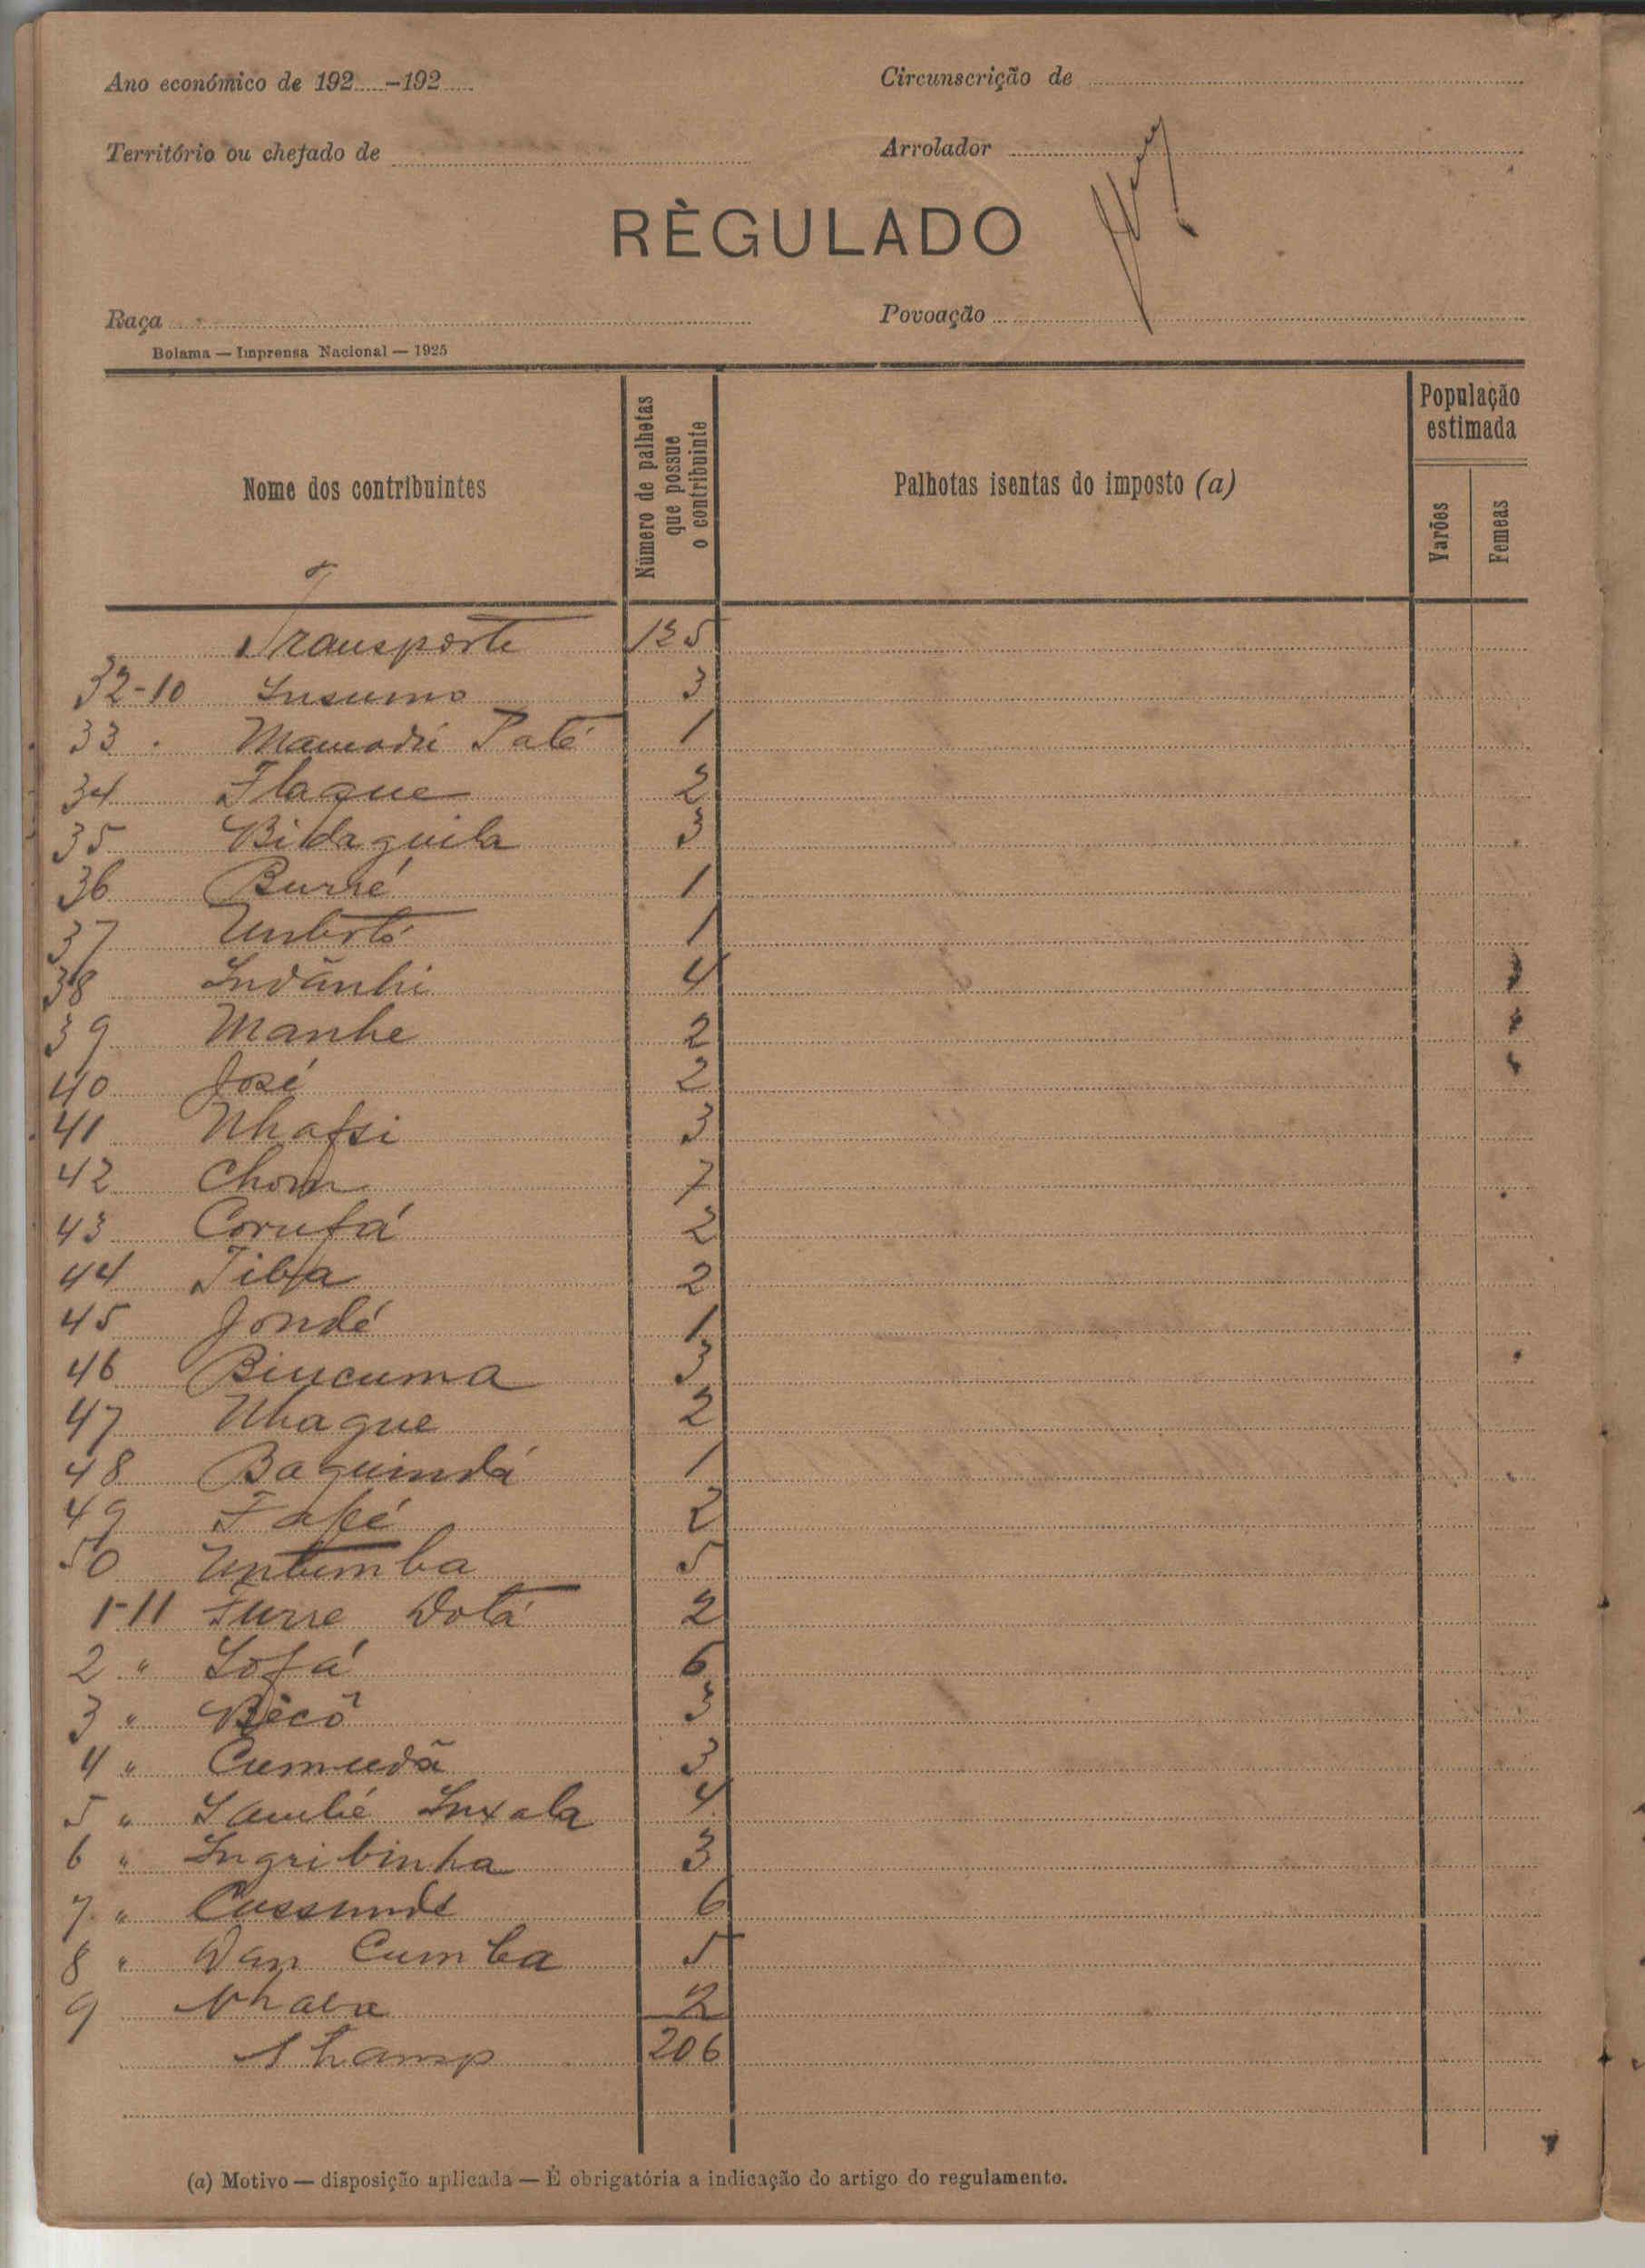 Ano económico de 192 -192
Circunscrição de
Território ou chefado de
Arrolador
RÈGULADO
Raça
Povoação
Bolama — Imprensa Nacional — 1925
Nome dos contribuintes
Número de palhotas que possue o contribuinte
Palhotas isentas do imposto (a)
População estimada
Varões
Femeas
Transporte 125
32-10 Insumo 3
33 . Mamadú Paté 1
34 Flaque 2
35 Bidaguila 3
36 Burré 1
37 Umbotó 1
38 Indánhi 4
39 Manhe 2
40 José 2
41 Nhafsi 3
42 Chom 7
43 Corufá 2
44 Tibra 2
45 Jondé 1
46 Biucuma 3
47 Nhaque 2
48 Baguindá 1
49 Fafé 2
50 Untimba 5
1-11 Furre Dotá 2
2 " Sofá 6
3 " Bècô 3
4 " Cumudã 3
5 " Sambé Inxala 4
6 " Ingribinha 3
7 " Cussundé 6
8 " Dan Cumba 5
9 Nhaba 2
A transp 206
(a) Motivo — disposição aplicada — É obrigatória a indicação do artigo do regulamento.